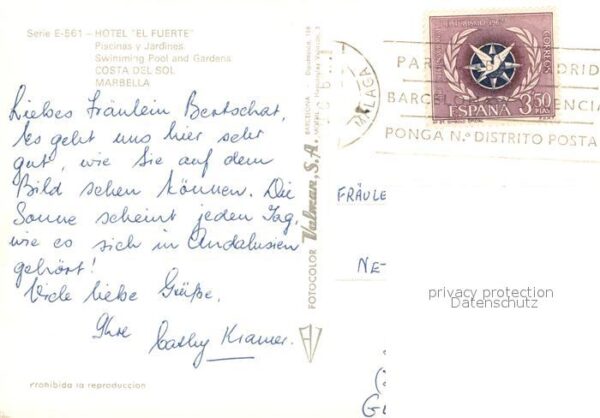 Serie E-561 - HOTEL "EL FUERTE"
Piscinas y Jardines
Swimming Pool and Gardens
COSTA DEL SOL
MARBELLA
Liebes Fräulein Bertschat,
Es geht uns hier sehr
gut, wie Sie auf dem
Bild sehen können. Die
Sonne scheint jeden Tag,
wie es sich in Andalusien
gehört!
Viele liebe Grüße,
Ihre
Cathy Kramer.
Prohibida la reproduccion
FOTOCOLOR Valman, S.A. BARCELONA
MALAGA
CORREOS
ESPAÑA 3,50
PTAS
PAR
DRID
BARCEL
ENCIA
PONGA N.º DISTRITO POSTA
FRÄULE
NE-
privacy protection
Datenschutz